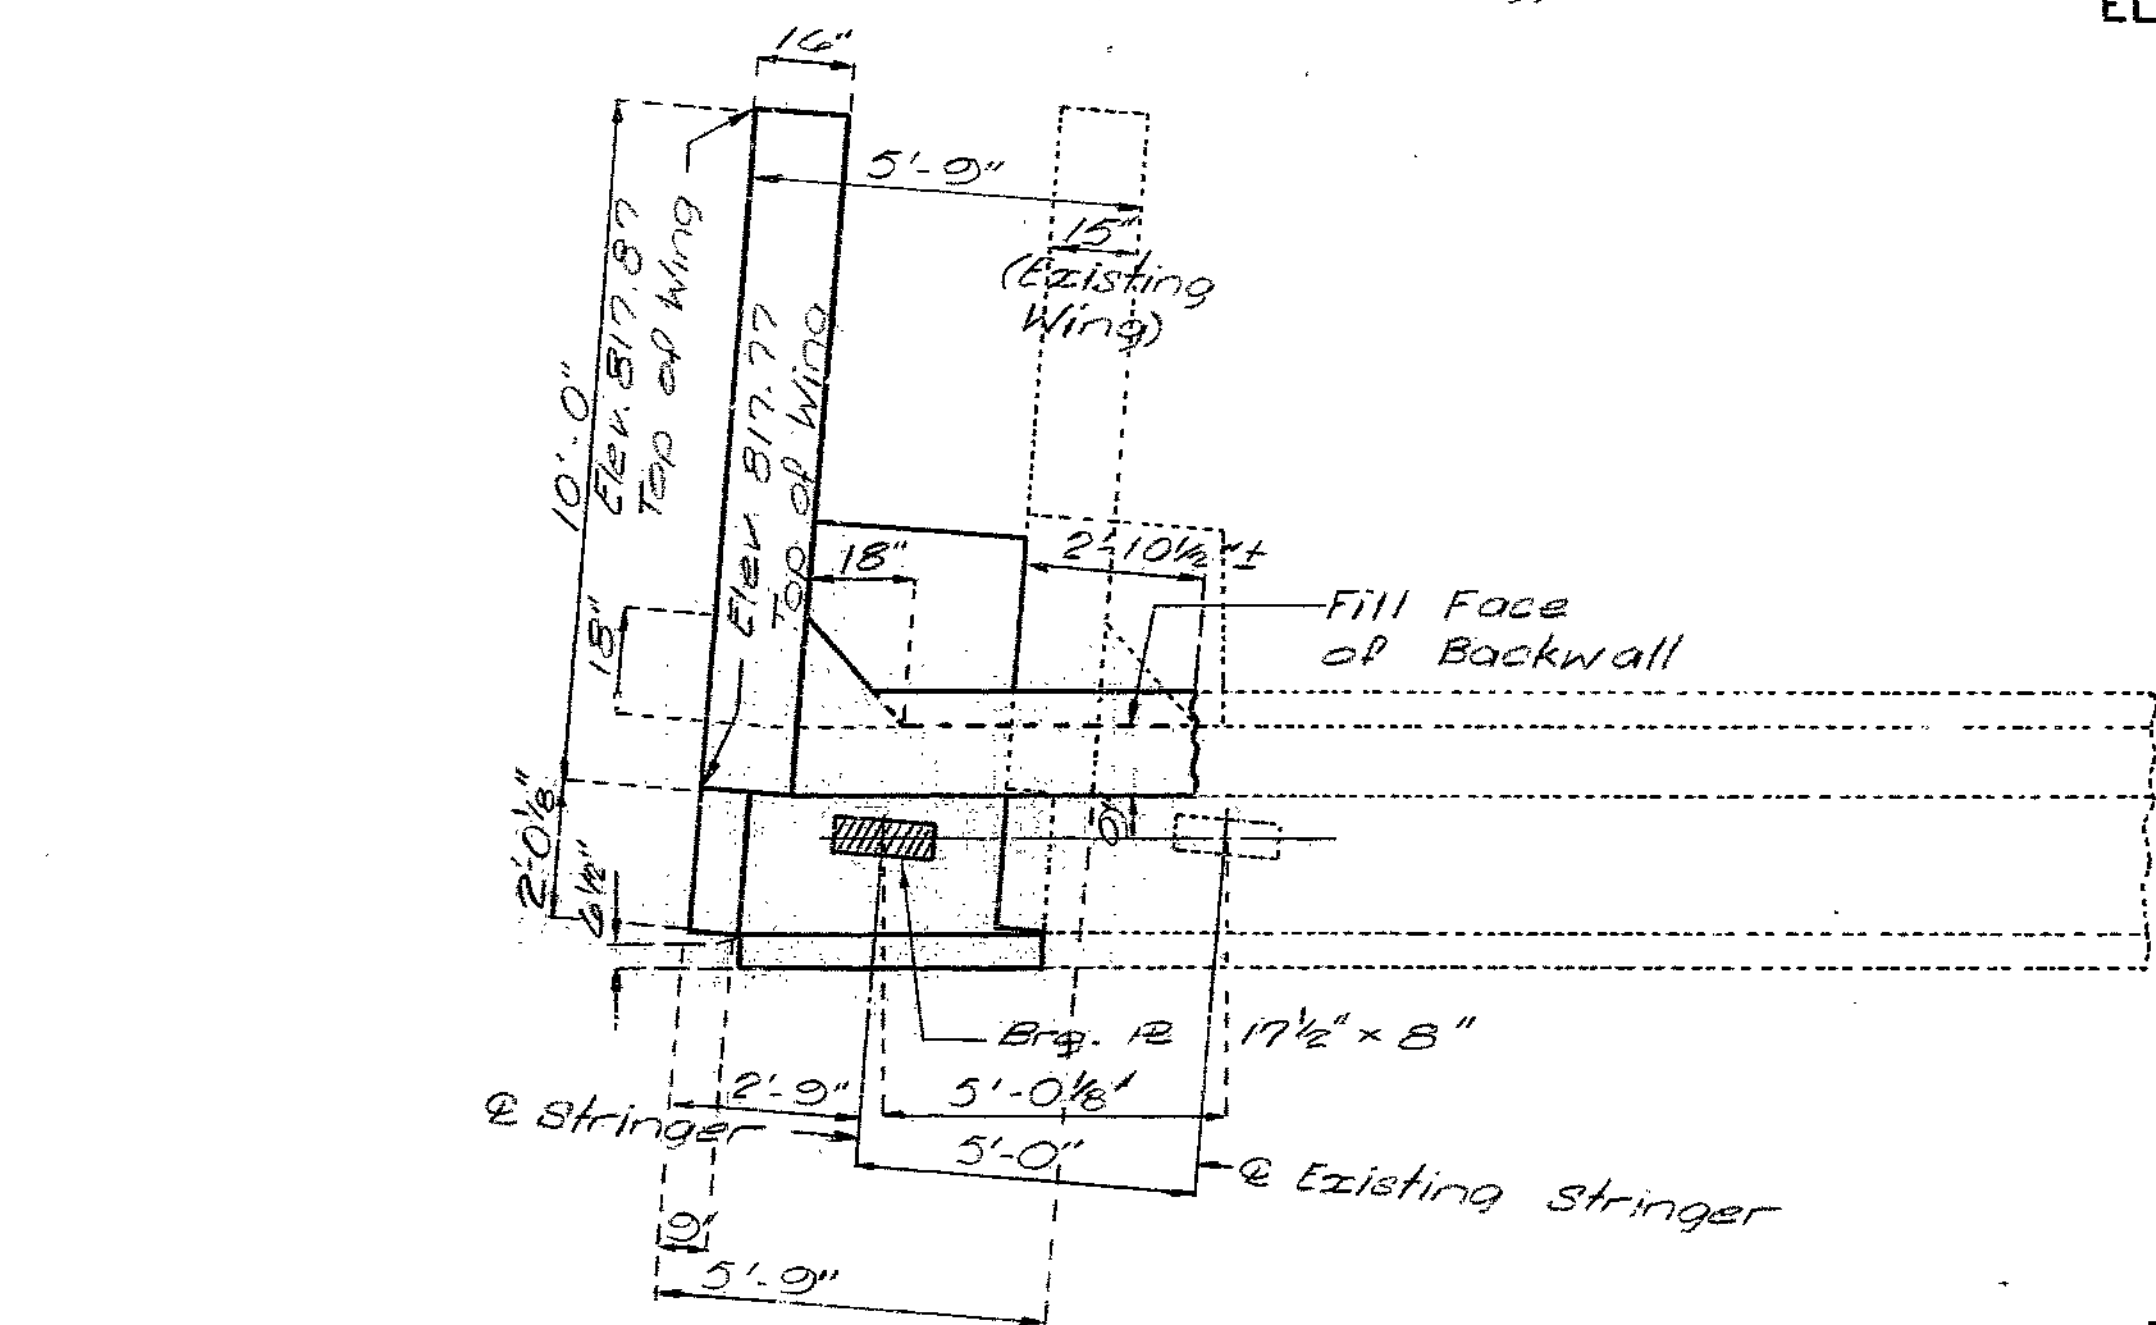 EL
16"
5'-9"
15"
(Existing
Wing)
10'-0"
Elev. 817.87
Top of Wing
Elev 817.77
Top of Wing
18"
2'-10½"±
18"
Fill Face
of Backwall
2'-0⅛"
6½"
9"
Brg. ℄ 17½" x 8"
2'-9"
5'-0⅛"
℄ Stringer
5'-0"
℄ Existing Stringer
9"
5'-9"